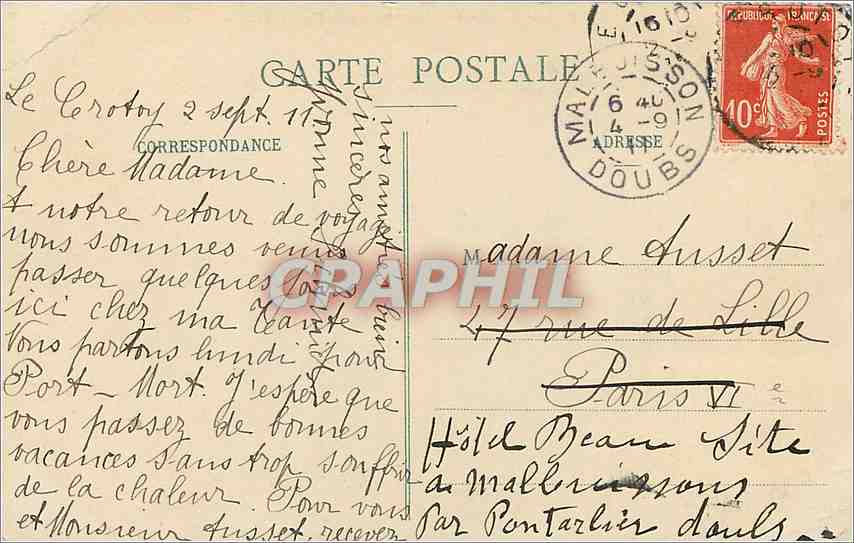 CARTE POSTALE
CORRESPONDANCE
ADRESSE
Le Crotoy 2 sept. 11.
Chère Madame.
A notre retour de voyage
nous sommes venus
passer quelques jours
ici chez ma Tante
Nous partons lundi pour
Port-Mort. J'espère que
vous passez de bonnes
vacances sans trop souffrir
de la chaleur. Pour vous
et Monsieur Ausset, recevez
nos amitiés bien
sincères
Yvonne
Madame Ausset
47 rue de Lille
Paris VIe
Hôtel Beau Site
à Malbuissons
Par Pontarlier doubs
MALBUISSON
6 40
4 -9
11
DOUBS
REPUBLIQUE FRANÇAISE
10c
POSTES
CRAPHIL